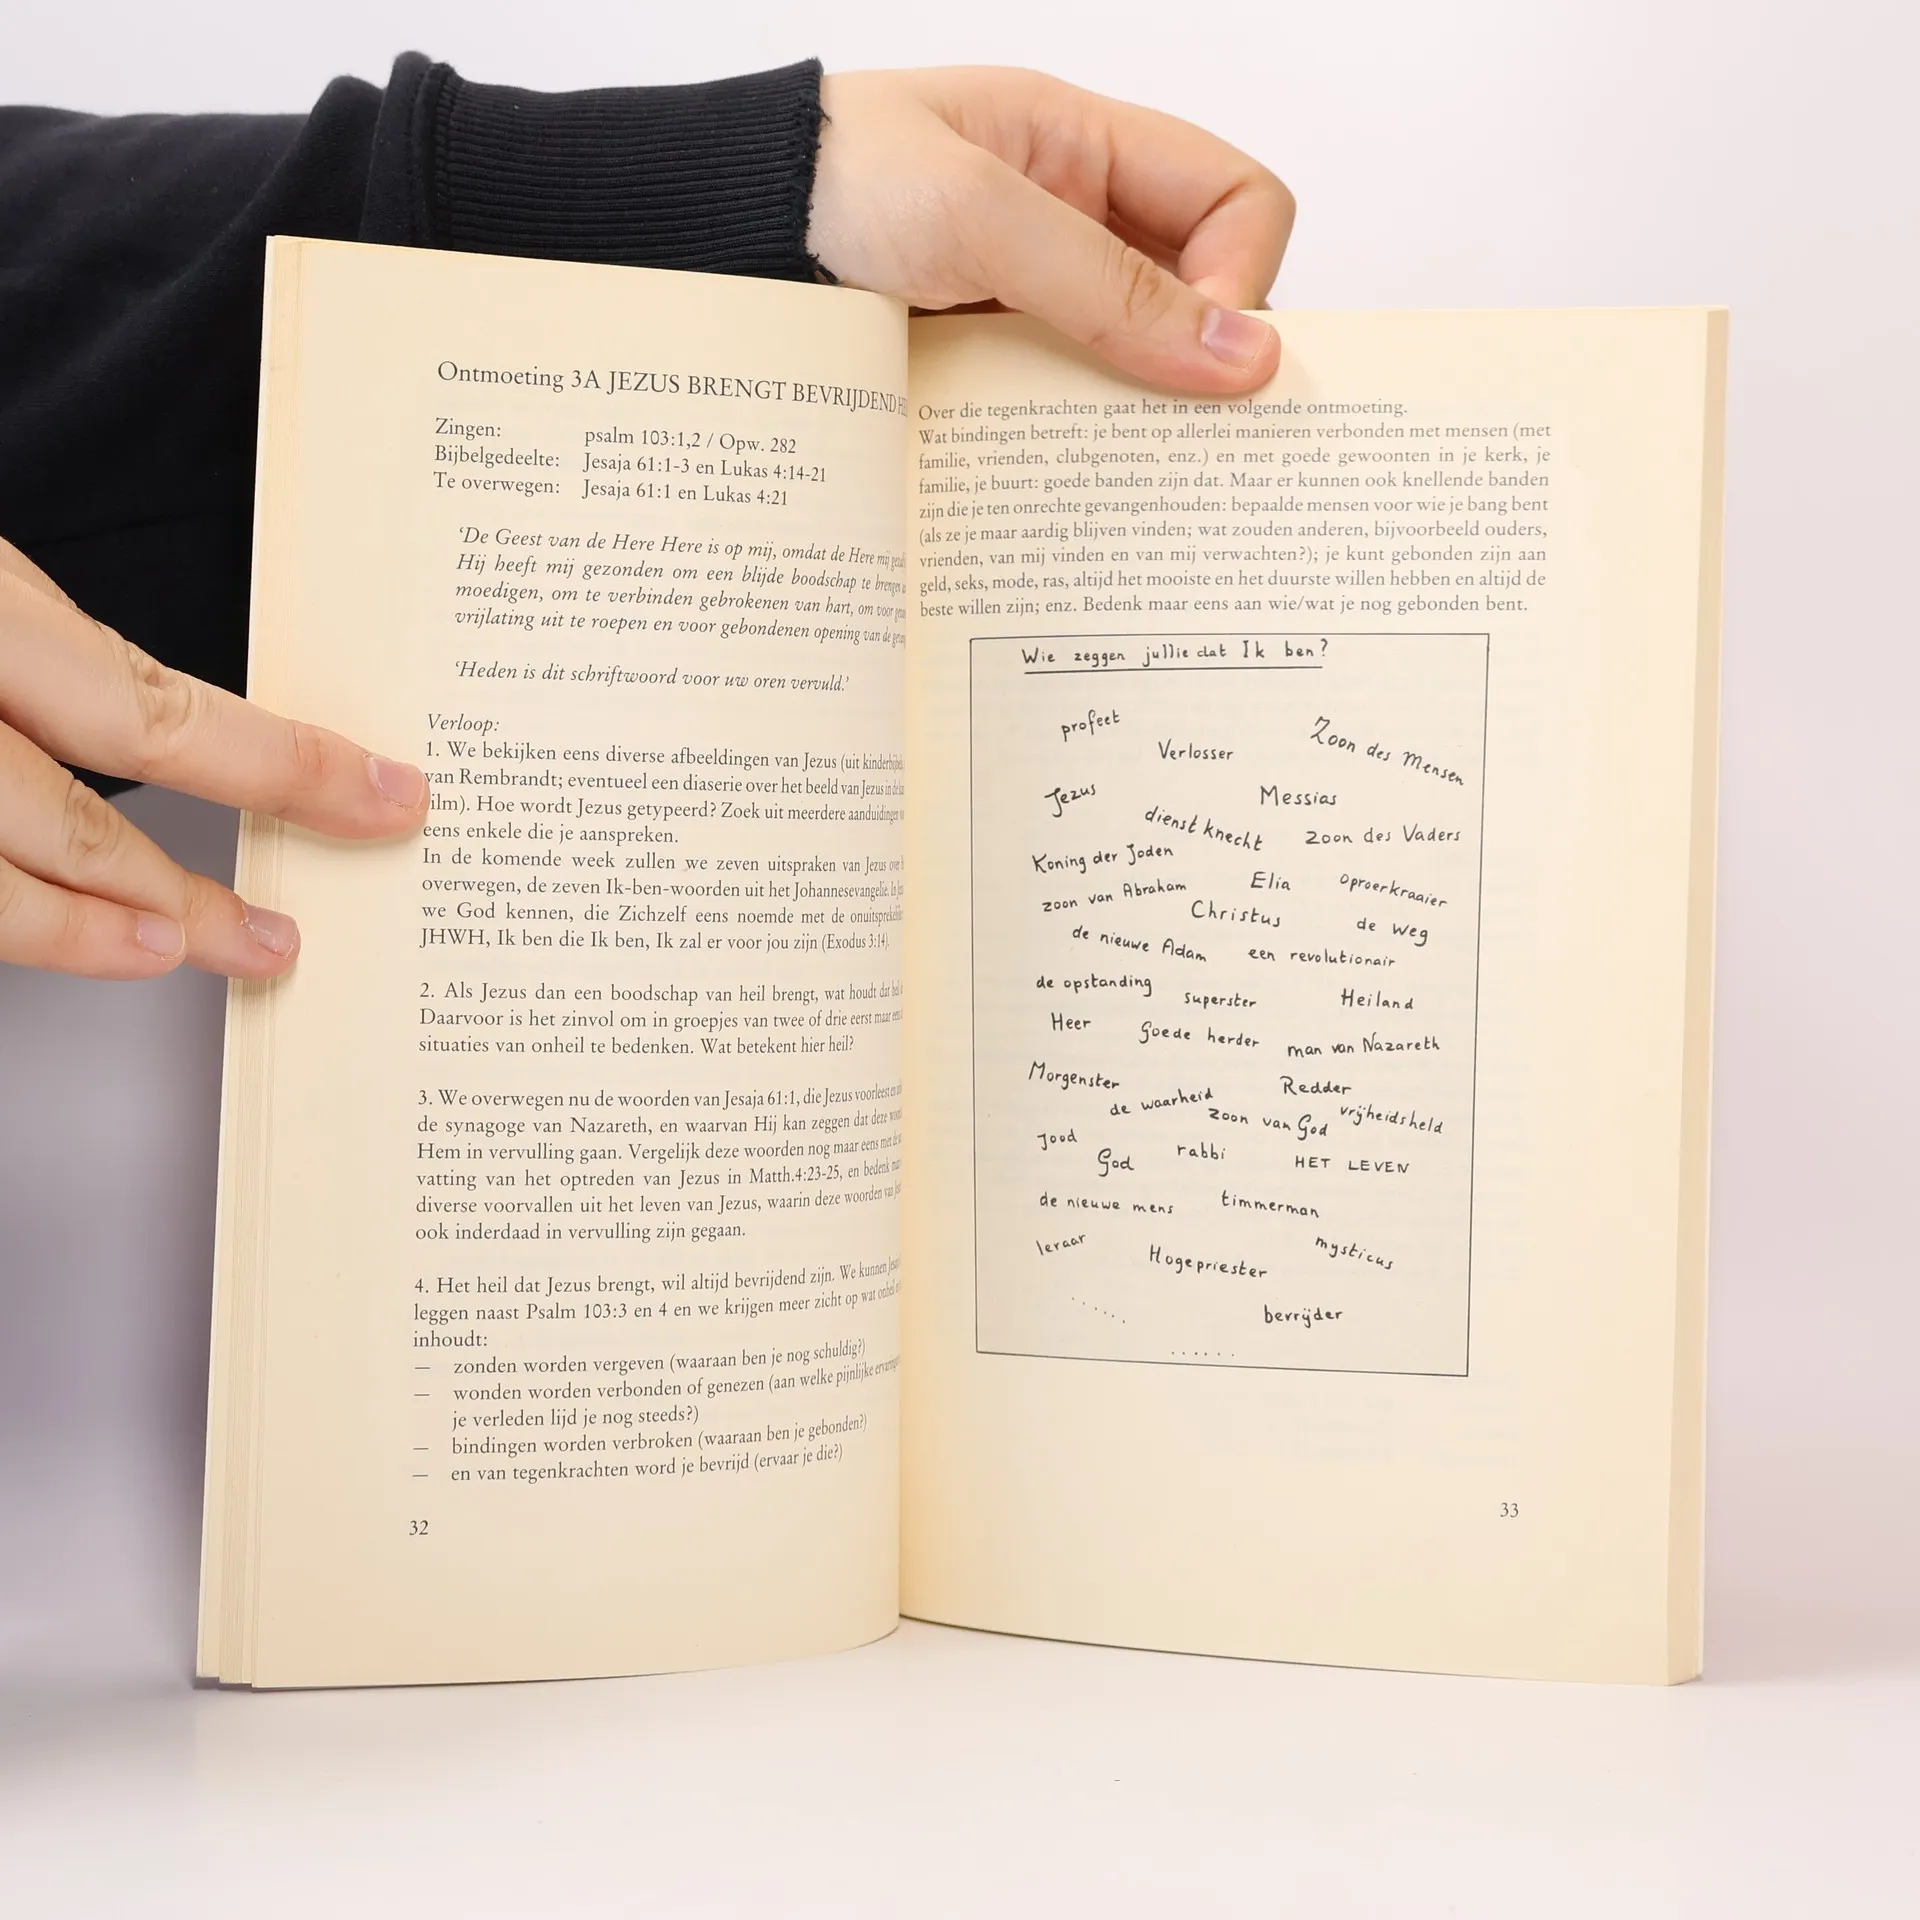 Ontmoeting 3A JEZUS BRENGT BEVRIJDEND
Zingen: psalm 103:1,2 / Opw. 282
Bijbelgedeelte: Jesaja 61:1-3 en Lukas 4:14-21
Te overwegen: Jesaja 61:1 en Lukas 4:21
‘De Geest van de Here Here is op mij, omdat de Here mij
Hij heeft mij gezonden om een blijde boodschap te brengen
moedigen, om te verbinden gebrokenen van hart, om voor
vrijlating uit te roepen en voor gebondenen opening van de
‘Heden is dit schriftwoord voor uw oren vervuld.’
Verloop:
1. We bekijken eens diverse afbeeldingen van Jezus (uit
van Rembrandt; eventueel een diaserie over het beeld van Jezus in de
ilm). Hoe wordt Jezus getypeerd? Zoek uit meerdere aanduidingen
eens enkele die je aanspreken.
In de komende week zullen we zeven uitspraken van Jezus over
overwegen, de zeven Ik-ben-woorden uit het Johannesevangelie. In
we God kennen, die Zichzelf eens noemde met de
JHWH, Ik ben die Ik ben, Ik zal er voor jou zijn (Exodus 3:14).
2. Als Jezus dan een boodschap van heil brengt, wat houdt dat heil
Daarvoor is het zinvol om in groepjes van twee of drie eerst maar
situaties van onheil te bedenken. Wat betekent hier heil?
3. We overwegen nu de woorden van Jesaja 61:1, die Jezus voorleest
de synagoge van Nazareth, en waarvan Hij kan zeggen dat deze
Hem in vervulling gaan. Vergelijk deze woorden nog maar eens met de
vatting van het optreden van Jezus in Matth.4:23-25, en bedenk
diverse voorvallen uit het leven van Jezus, waarin deze woorden van
ook inderdaad in vervulling zijn gegaan.
4. Het heil dat Jezus brengt, wil altijd bevrijdend zijn. We kunnen
leggen naast Psalm 103:3 en 4 en we krijgen meer zicht op wat
inhoudt:
— zonden worden vergeven (waaraan ben je nog schuldig?)
— wonden worden verbonden of genezen (aan welke pijnlijke
je verleden lijd je nog steeds?)
— bindingen worden verbroken (waaraan ben je gebonden?)
— en van tegenkrachten word je bevrijd (ervaar je die?)
32
Over die tegenkrachten gaat het in een volgende ontmoeting.
Wat bindingen betreft: je bent op allerlei manieren verbonden met mensen (met
familie, vrienden, clubgenoten, enz.) en met goede gewoonten in je kerk, je
familie, je buurt: goede banden zijn dat. Maar er kunnen ook knellende banden
zijn die je ten onrechte gevangenhouden: bepaalde mensen voor wie je bang bent
(als ze je maar aardig blijven vinden; wat zouden anderen, bijvoorbeeld ouders,
vrienden, van mij vinden en van mij verwachten?); je kunt gebonden zijn aan
geld, seks, mode, ras, altijd het mooiste en het duurste willen hebben en altijd de
beste willen zijn; enz. Bedenk maar eens aan wie/wat je nog gebonden bent.
Wie zeggen jullie dat Ik ben?
profeet
Verlosser
Zoon des Mensen
Jezus
Messias
dienstknecht
zoon des Vaders
Koning der Joden
zoon van Abraham
Elia
oproerkraaier
Christus
de weg
de nieuwe Adam
een revolutionair
de opstanding
superster
Heiland
Heer
goede herder
man van Nazareth
Morgenster
Redder
de waarheid
zoon van God
vrijheidsheld
jood
God
rabbi
HET LEVEN
de nieuwe mens
timmerman
leraar
Hogepriester
mysticus
......
bevrijder
......
33